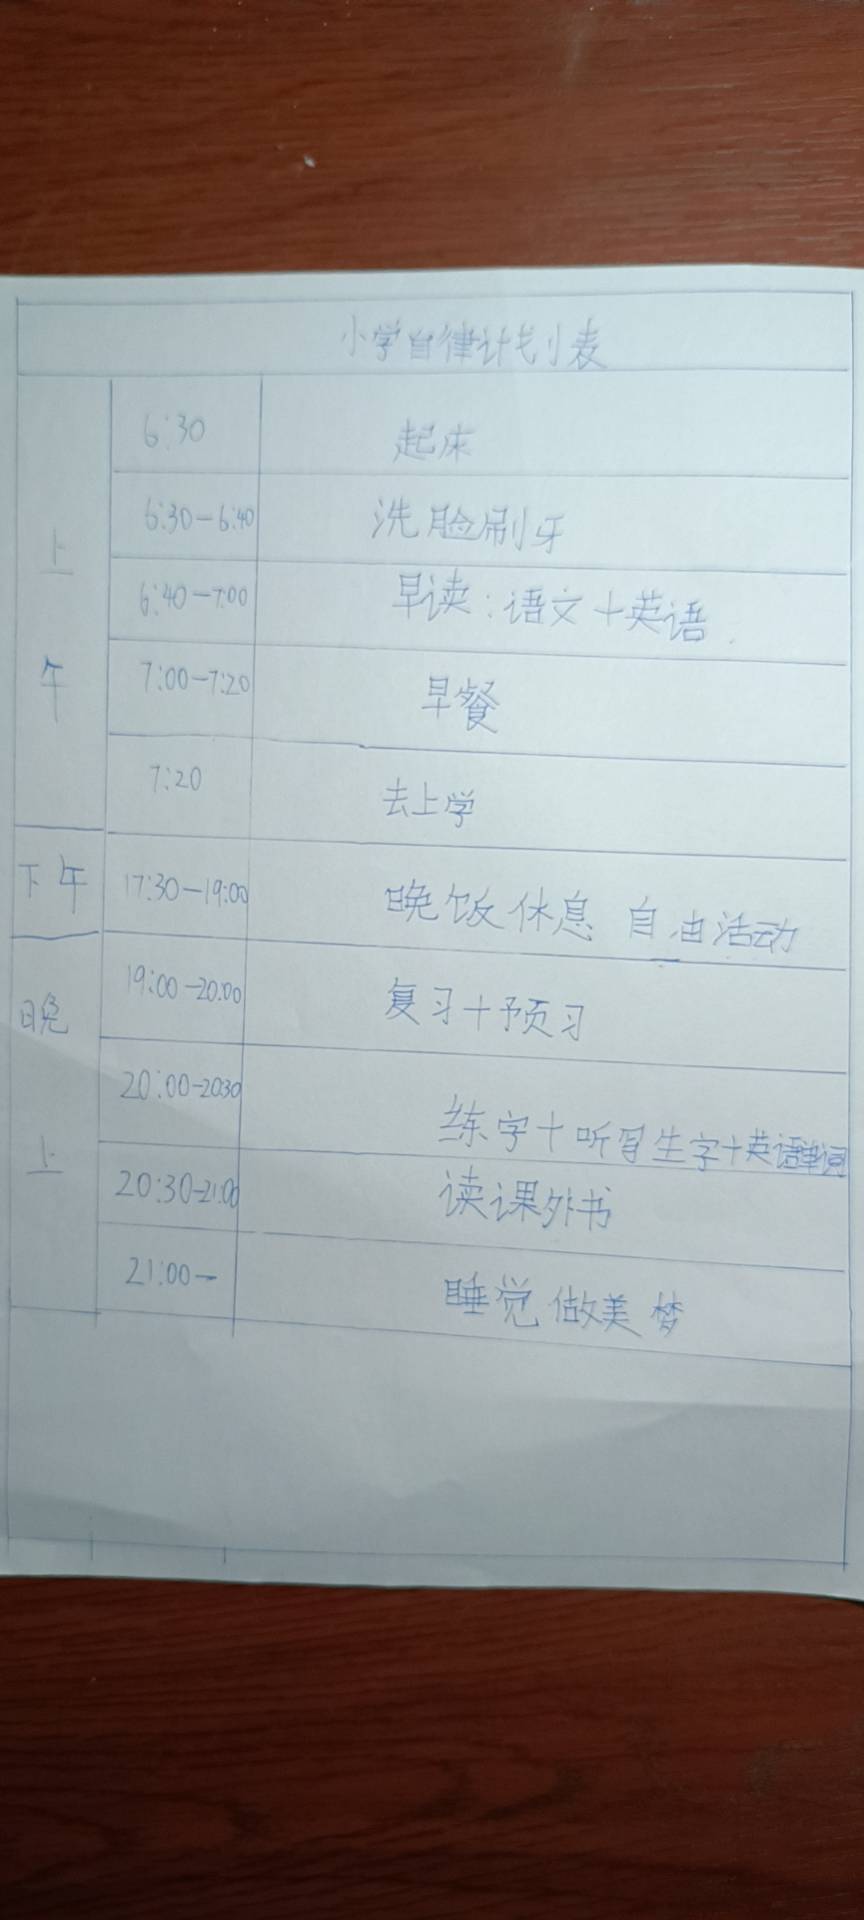 小学自律计划表
上午
6:30 起床
6:30-6:40 洗脸刷牙
6:40-7:00 早读:语文+英语.
7:00-7:20 早餐
7:20 去上学
下午
17:30-19:00 晚饭休息 自由活动
晚上
19:00-20:00 复习+预习
20:00-2030 练字+听写生字+英语单词
20:30-21:00 读课外书
21:00- 睡觉做美梦